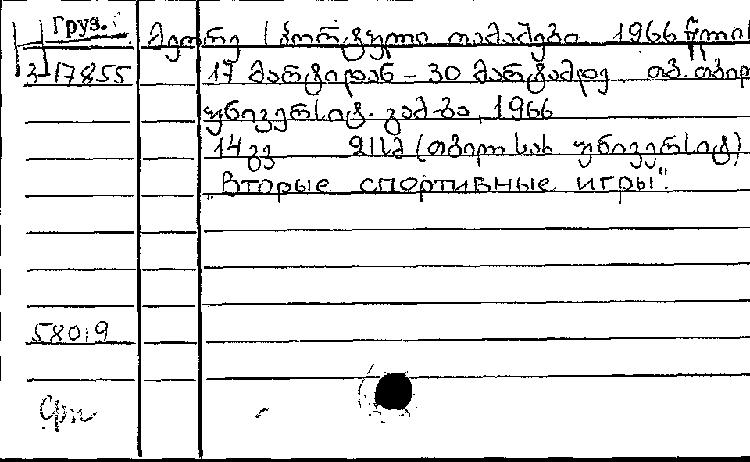 Груз.
მეორე სპორტული თამაშები 1966 წლის
3-17855 17 მარტიდან - 30 მარტამდე. თბ. თბილ
უნივერსიტ. გამ-ბა, 1966
14 გვ (თბილ. სახ უნივერსიტ)
"Вторые спортивные игры".
58019